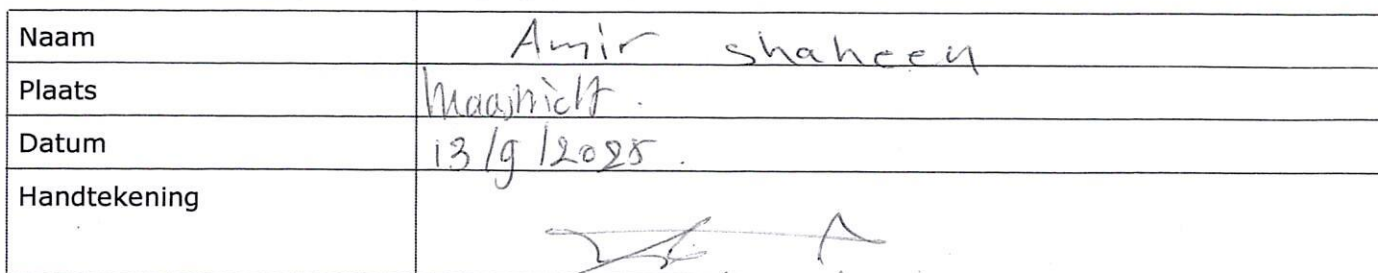 Naam Amir shaheen
Plaats Maastricht.
Datum 13/9/2025.
Handtekening